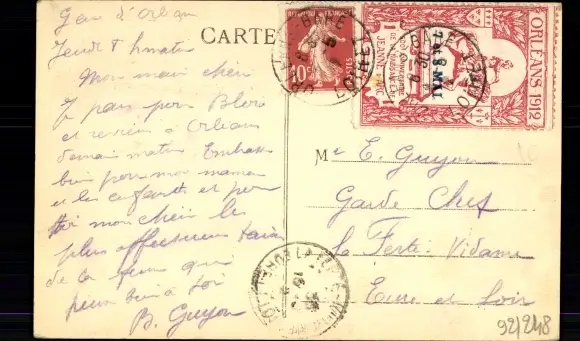 Gare d'Orléans
Jeudi 7h matin
CARTE
Mon mari chéri
Je pars pour Blois
et reviens à Orléans
demain matin Embrasse
bien pour moi maman
et les enfants et pour
toi mon chéri les
plus affectueux
de la femme qui
pense bien à toi
B. Guyon
10c
ORLEANS 1912
JEANNE D'ARC
8 MAI
LOIRET
Mr E. Guyon
Garde Chef
La Ferté Vidame
Eure et Loir
92/248